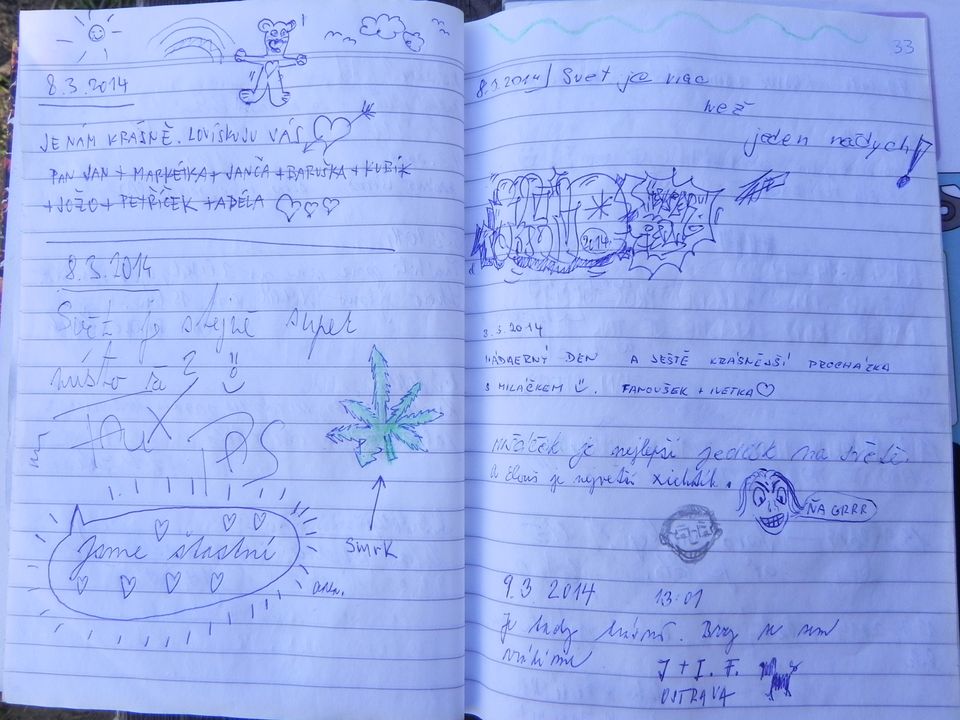 8.3.2014
JE NÁM KRÁSNĚ. LOVÍSKUJU VÁS
PAN JAN + MARKÉTKA + JANČA + BARUŠKA + KUBÍK
+ JOŽO + PETŘÍČEK + ADÉLA
8.3.2014
Svět je stejně super
místo
jsme šťastní
Smrk
33
8.3.2014 Svet je viac
než
jeden nádych!
2014
8.3.2014
NÁDHERNÝ DEN A JEŠTĚ KRÁSNĚJŠÍ PROCHÁZKA
S MILÁČKEM FANOUŠEK + IVETKA
je nejlepší na světě.
a je největší xichtík.
ŇA GRRR
9.3 2014 13:01
Je tady krásně. Brzy se sem
vrátíme
J + I. F.
OSTRAVA